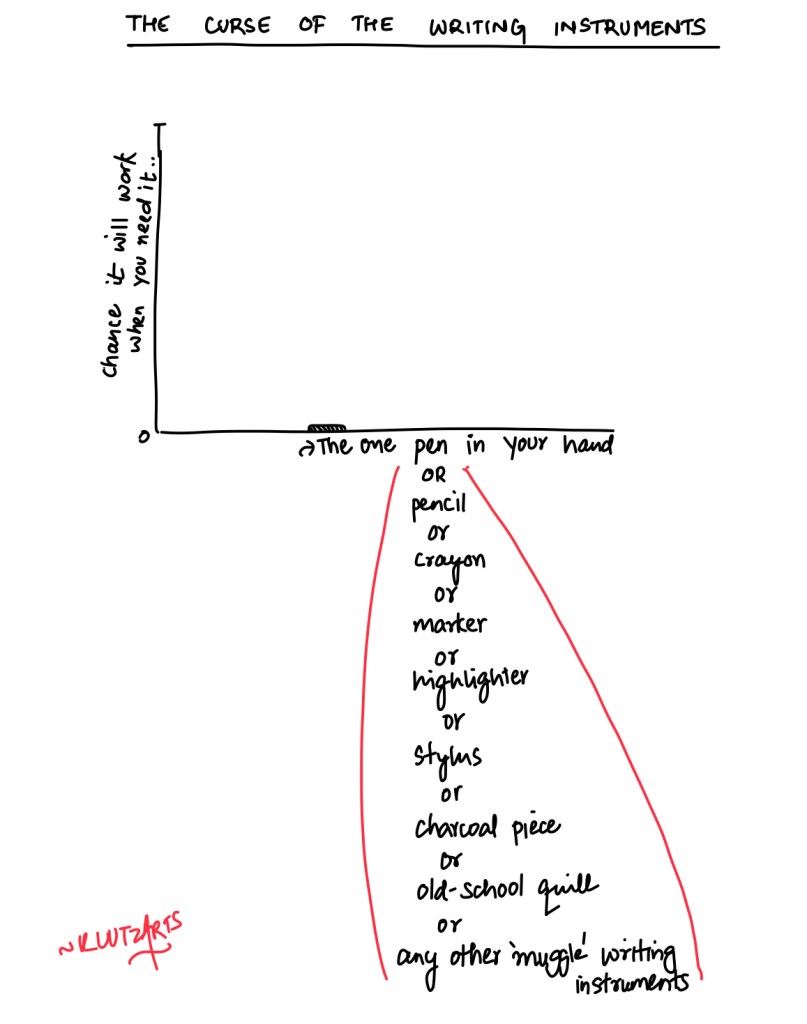 THE CURSE OF THE WRITING INSTRUMENTS
Chance it will work
when you need it..
0
The one pen in your hand
OR
pencil
or
crayon
or
marker
or
highlighter
or
stylus
or
charcoal piece
or
old-school quill
or
any other 'muggle' writing
instruments